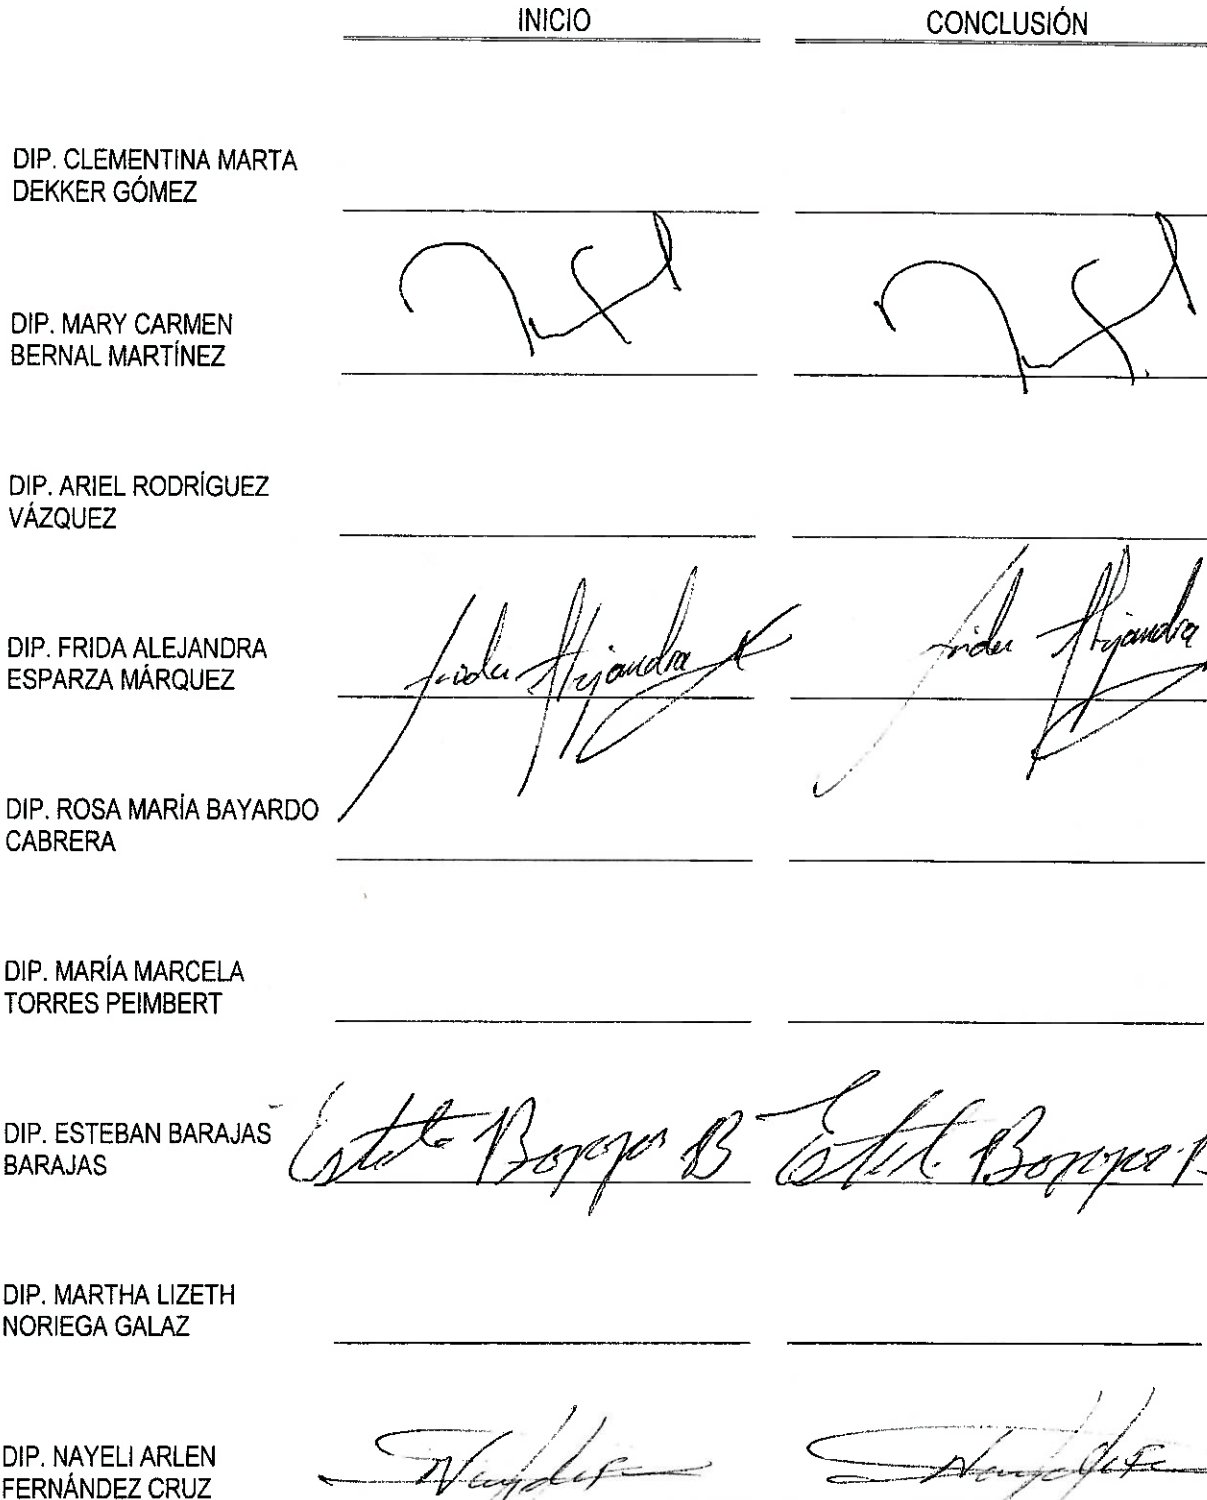 INICIO CONCLUSIÓN
DIP. CLEMENTINA MARTA
DEKKER GÓMEZ
DIP. MARY CARMEN
BERNAL MARTÍNEZ
DIP. ARIEL RODRÍGUEZ
VÁZQUEZ
DIP. FRIDA ALEJANDRA
ESPARZA MÁRQUEZ
Frida Alejandra Frida Alejandra
DIP. ROSA MARÍA BAYARDO
CABRERA
DIP. MARÍA MARCELA
TORRES PEIMBERT
DIP. ESTEBAN BARAJAS
BARAJAS
DIP. MARTHA LIZETH
NORIEGA GALAZ
DIP. NAYELI ARLEN
FERNÁNDEZ CRUZ